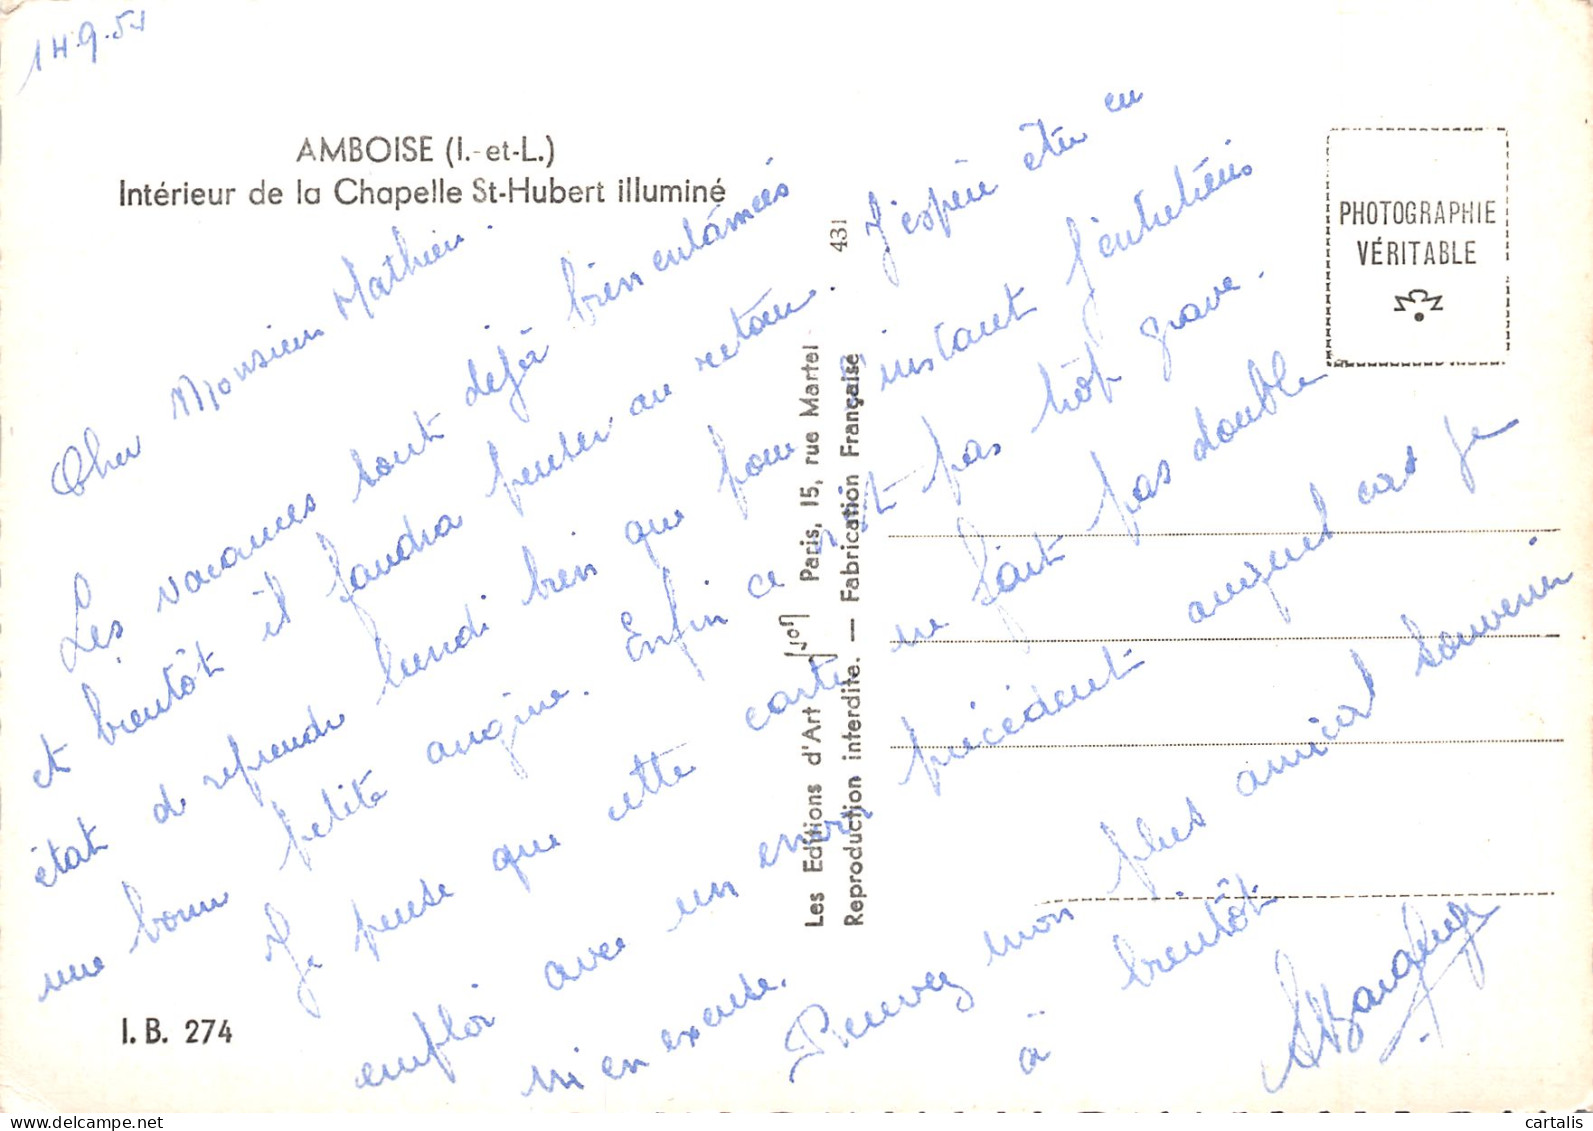 14.9.54
AMBOISE (I.-et-L.)
Intérieur de la Chapelle St-Hubert illuminé
Cher Monsieur Mathieu.
Les vacances sont déjà bien entâmées
et bientôt il faudra penser au retour. J'espère être en
état de reprendre lundi bien que pour l'instant j'entretiens
une bonne petite angine. Enfin ce n'est pas trop grave.
Je pense que cette carte ne fait pas double
emploi avec un envoi précédent auquel cas je
m'en excuse.
Recevez mon plus amical souvenir
à bientôt
PHOTOGRAPHIE
VÉRITABLE
431
Les Editions d'Art Yvon Paris, 15, rue Martel
Reproduction interdite. — Fabrication Française
I. B. 274
cartalis